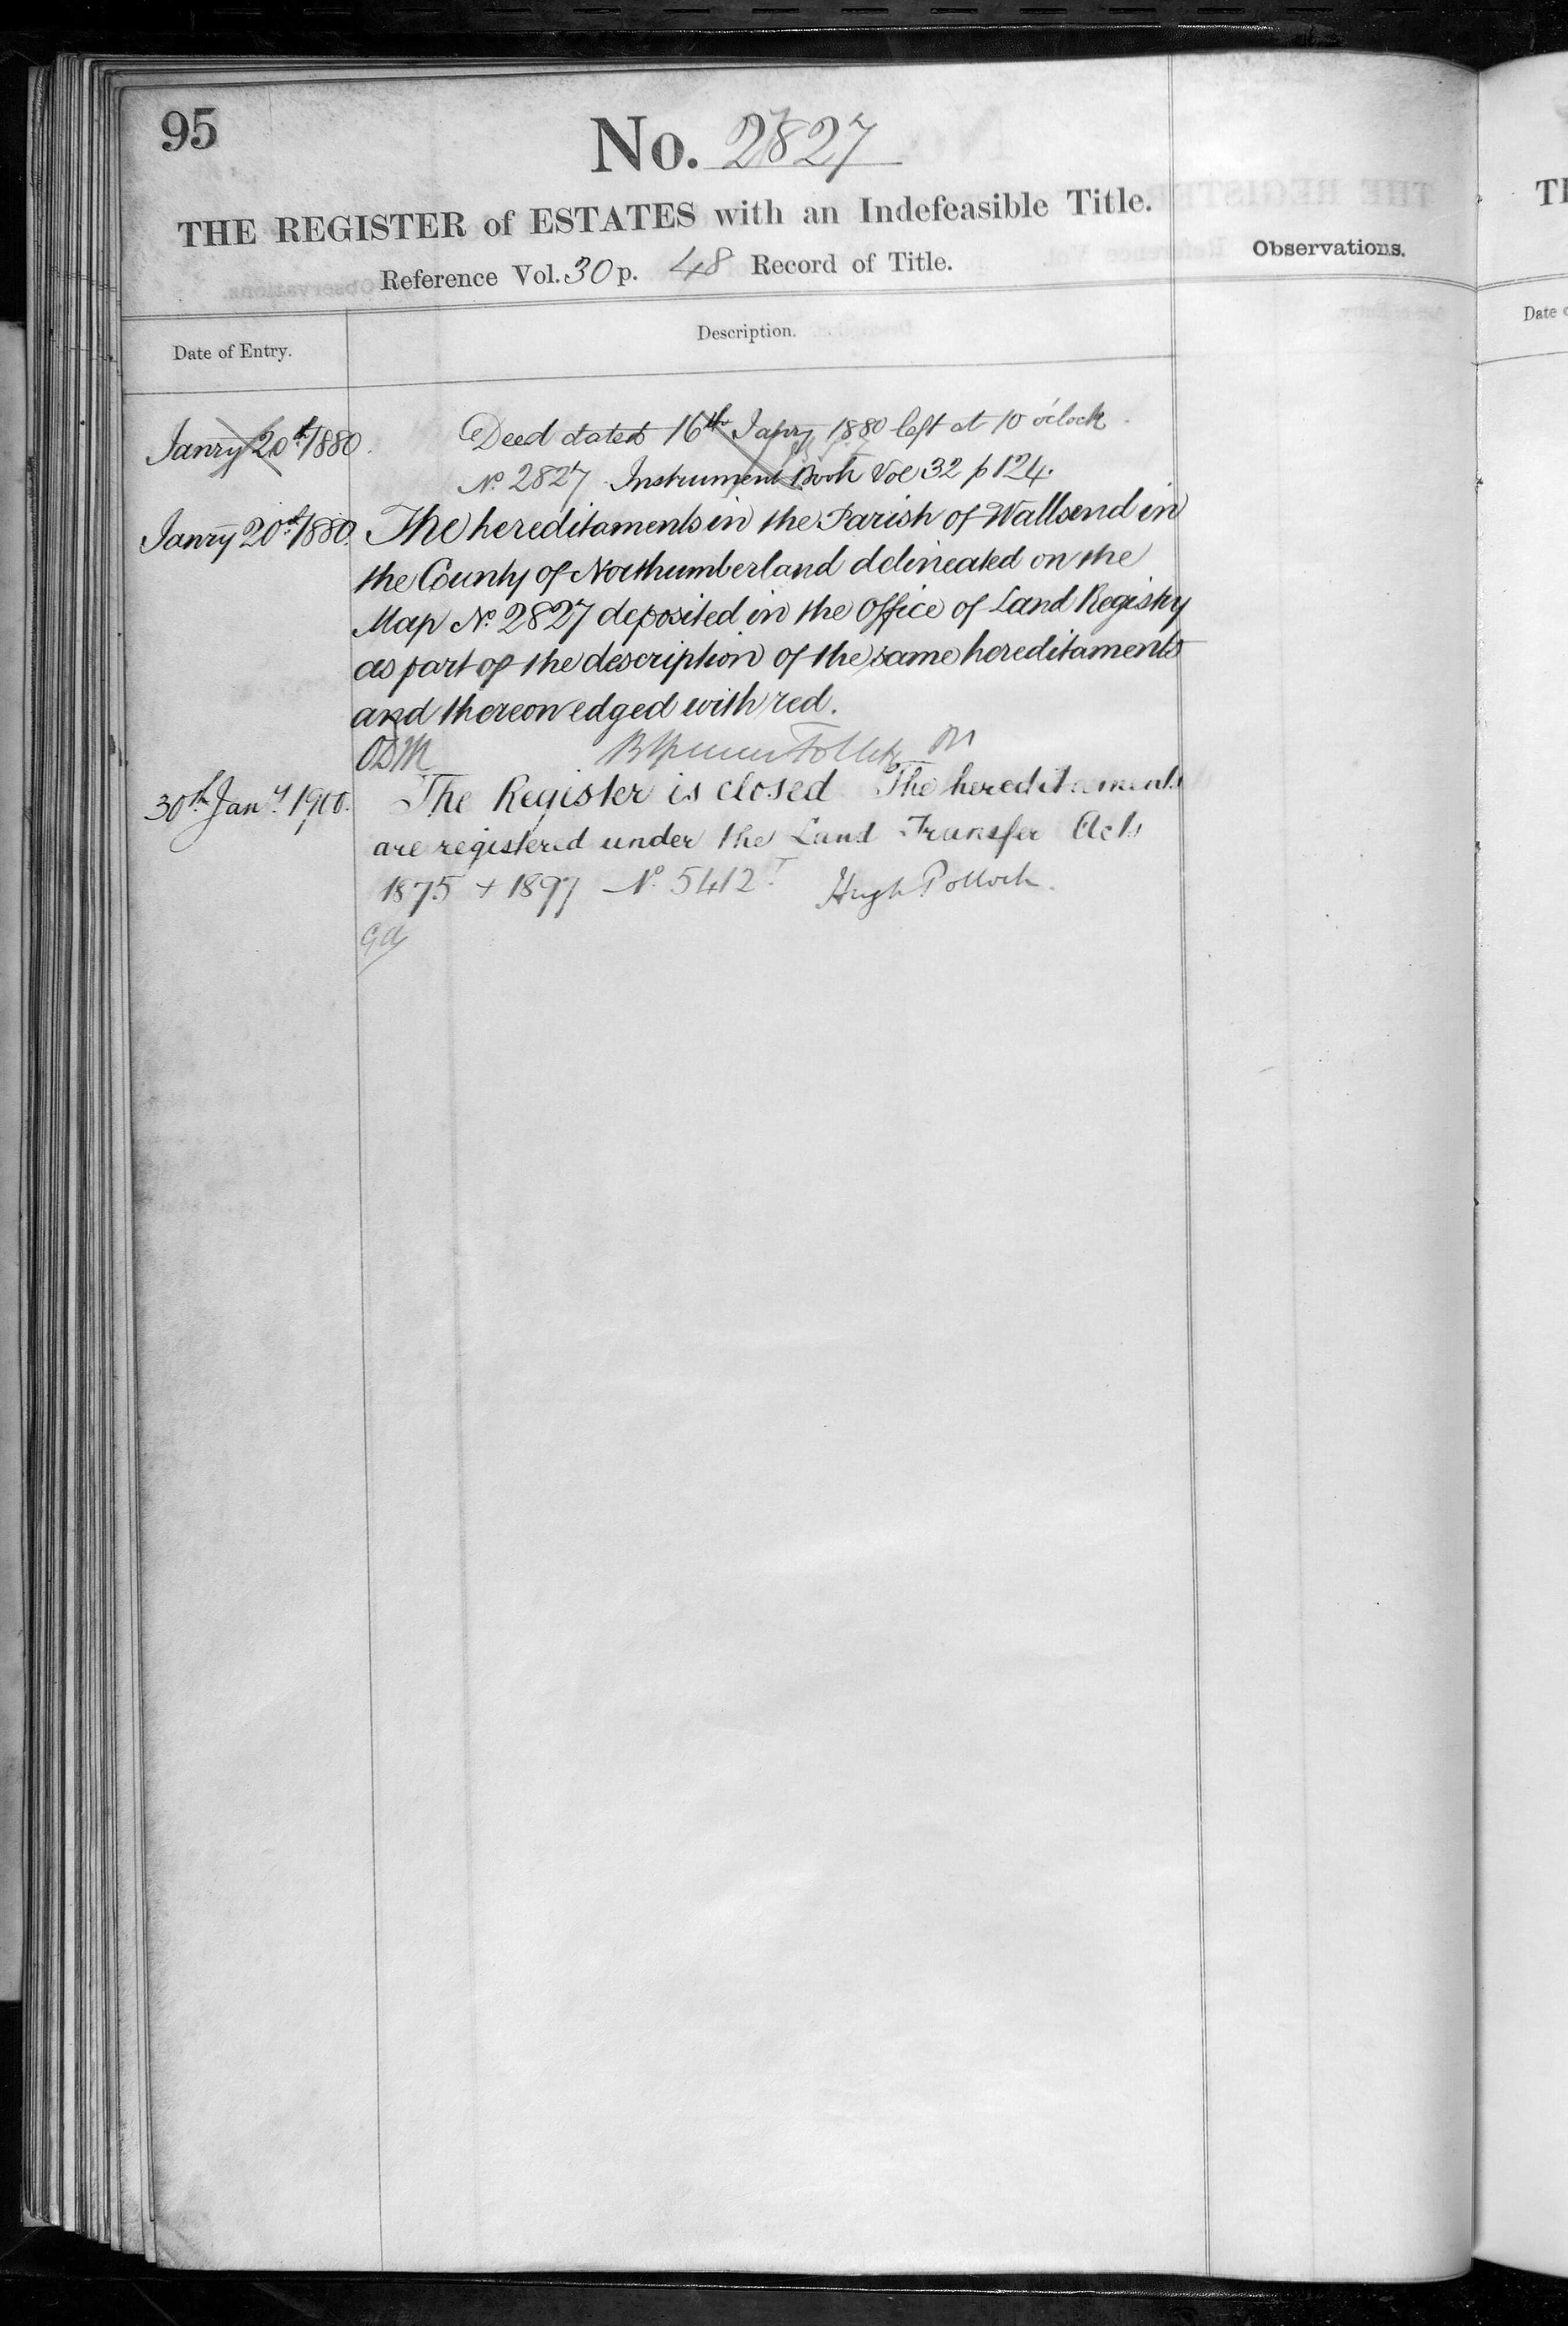 95
No. 2827
THE REGISTER of ESTATES with an Indefeasible Title.
Reference Vol. 30 p. 48 Record of Title.
Observations.
Date of Entry.
Description.
Janry 20th 1880.
Deed dated 16th Janry 1880 left at 10 o'clock
No. 2827 Instrument Book Vol 32 p 124.
Janry 20th 1880.
The hereditaments in the Parish of Wallsend in
the County of Northumberland delineated on the
Map No. 2827 deposited in the Office of Land Registry
as part of the description of the same hereditaments
and thereon edged with red.
30th Jany. 1900.
The Register is closed The hereditaments
are registered under the Land Transfer Acts
1875 + 1897 No. 5412
Hugh Pollock.